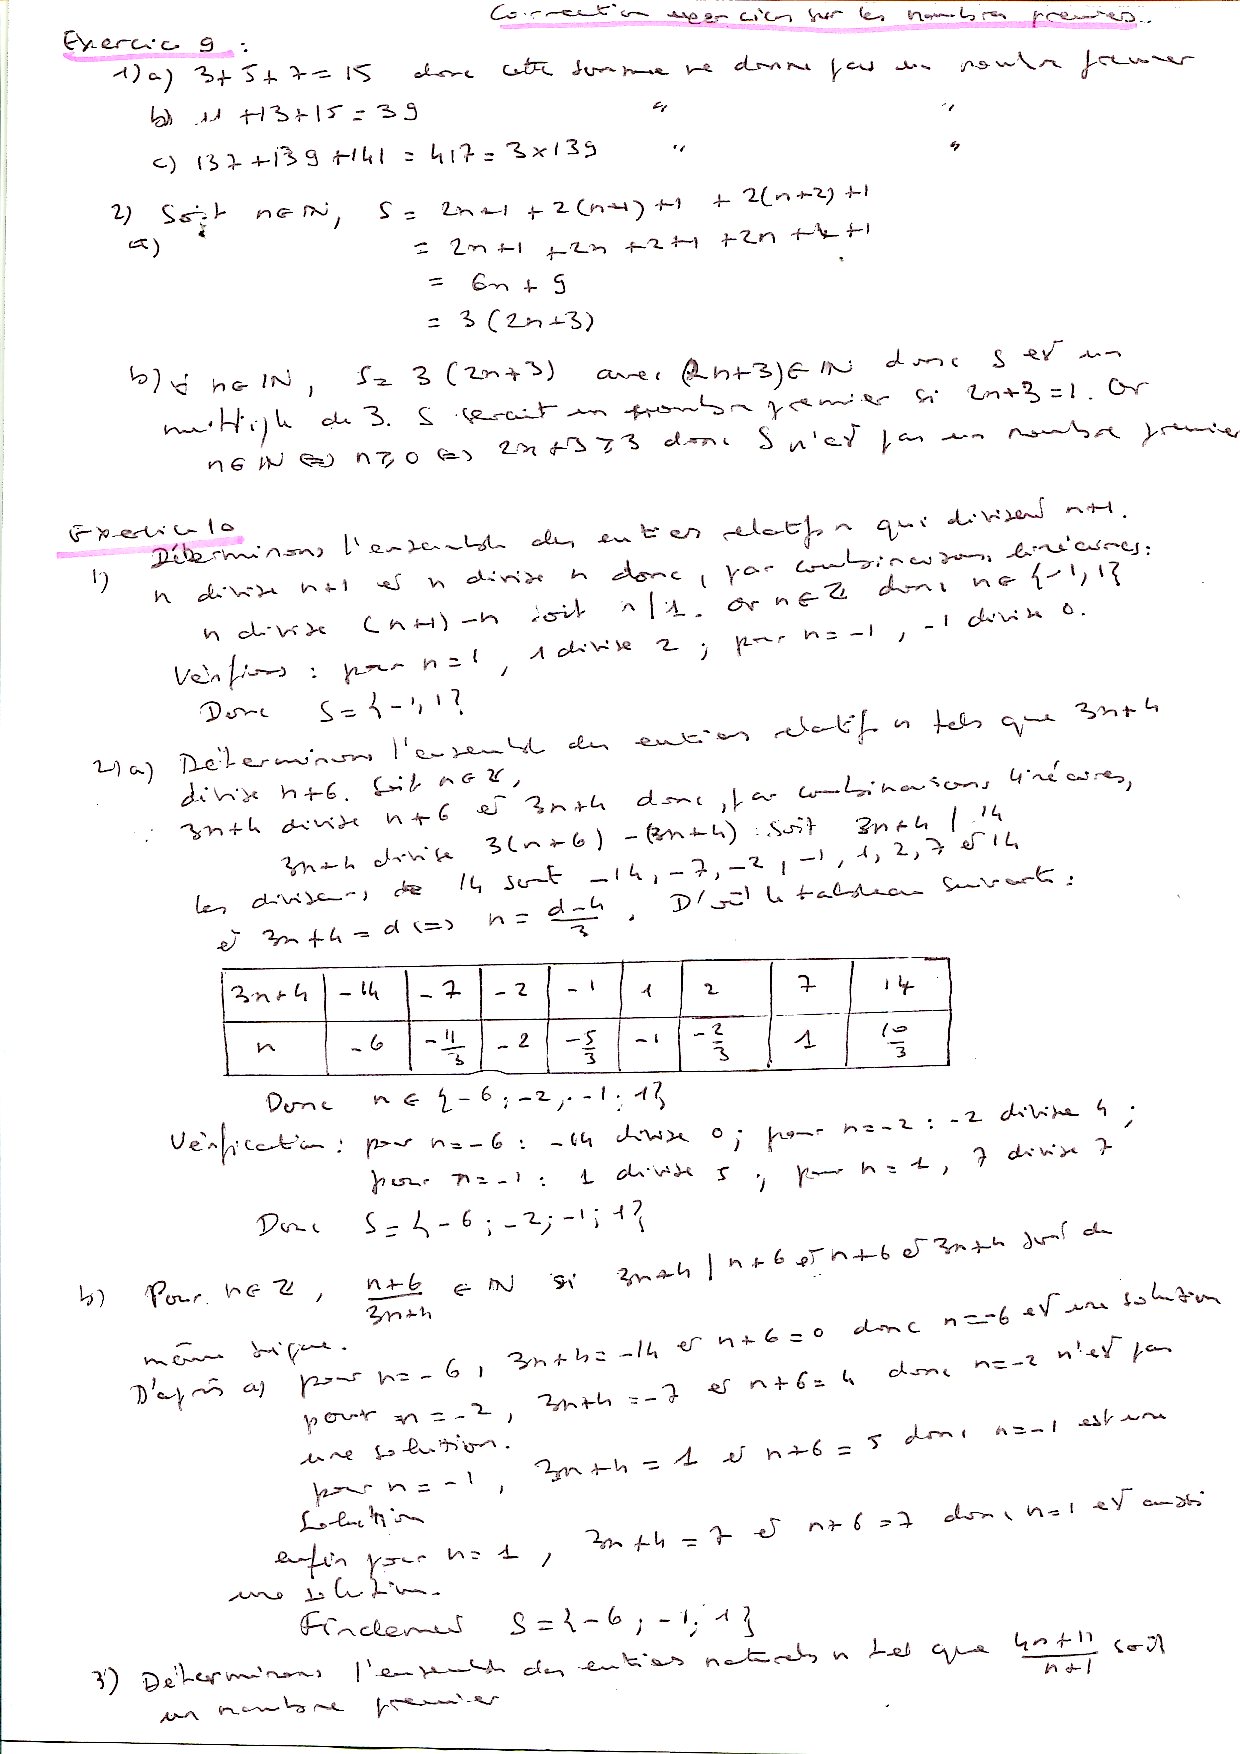 Correction exercices sur les nombres premiers.
Exercice 9 :
1) a) 3+5+7=15 donc cette somme ne donne pas un nombre premier
b) 11+13+15=39 " "
c) 137+139+141=417=3×139 " "
2) Soit n∈ℕ, S = 2n+1+2(n+1)+1+2(n+2)+1
a) = 2n+1+2n+2+1+2n+4+1
= 6n+9
= 3(2n+3)
b) ∀ n∈ℕ, S=3(2n+3) avec (2n+3)∈ℕ donc S est un
multiple de 3. S serait un nombre premier si 2n+3=1. Or
n∈ℕ ⇔ n⩾0 ⇔ 2n+3⩾3 donc S n'est pas un nombre premier
Exercice 10
1) Déterminons l'ensemble des entiers relatifs n qui divisent n+1.
n divise n+1 et n divise n donc, par combinaisons linéaires:
n divise (n+1)-n soit n/1. Or n∈ℤ donc n∈{-1,1}
Vérifions : pour n=1, 1 divise 2 ; pour n=-1, -1 divise 0.
Donc S={-1,1}
2) a) Déterminons l'ensemble des entiers relatifs n tels que 3n+4
divise n+6. Soit n∈ℤ,
3n+4 divise n+6 et 3n+4 donc, par combinaisons linéaires,
3n+4 divise 3(n+6)-(3n+4) soit 3n+4 | 14
les diviseurs de 14 sont -14, -7, -2, -1, 1, 2, 7 et 14
et 3n+4=d ⇔ n=(d-4)/3. D'où le tableau suivant :
3n+4 -14 -7 -2 -1 1 2 7 14
n -6 -11/3 -2 -5/3 -1 -2/3 1 10/3
Donc n∈{-6;-2;-1;1}
Vérification : pour n=-6 : -14 divise 0 ; pour n=-2 : -2 divise 4 ;
pour n=-1 : 1 divise 5 ; pour n=1, 7 divise 7
Donc S={-6;-2;-1;1}
b) Pour n∈ℤ, (n+6)/(3n+4) ∈ℕ si 3n+4 | n+6 et n+6 et 3n+4 sont de
même signe.
D'après a) pour n=-6, 3n+4=-14 et n+6=0 donc n=-6 est une solution
pour n=-2, 3n+4=-7 et n+6=4 donc n=-2 n'est pas
une solution.
pour n=-1, 3n+4=1 et n+6=5 donc n=-1 est une
solution
enfin pour n=1, 3n+4=7 et n+6=7 donc n=1 est aussi
une solution.
Finalement S={-6;-1;1}
3) Déterminons l'ensemble des entiers naturels n tel que (4n+11)/(n+1) soit
un nombre premier